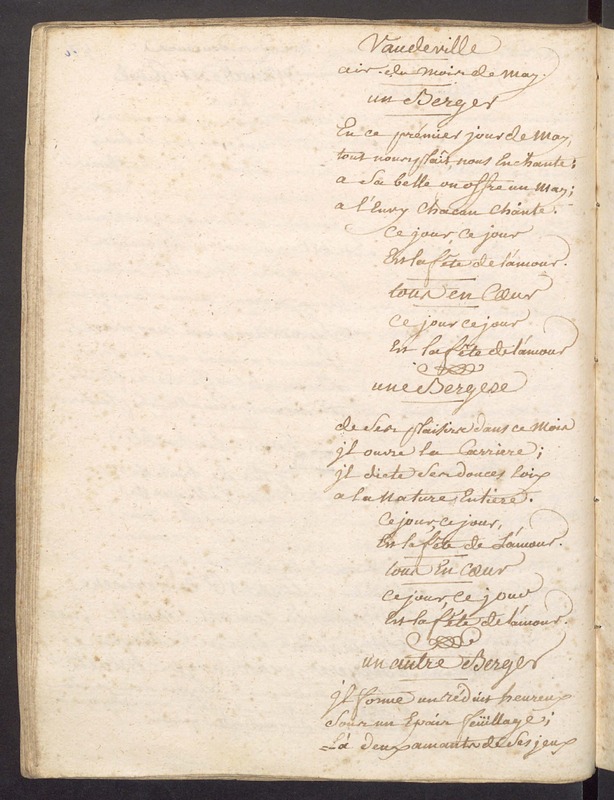 Vaudeville
air du mois de may.
un Berger
En ce premier jour de May,
tout nous plaît, nous Enchante;
a Sa belle on offre un May;
a l'Envy Chacun Chante.
Ce jour, Ce jour
Est la fête de l'amour.
tous en Cœur
Ce jour ce jour
Est la fête de l'amour
une Bergere
de Ses plaisirs dans ce Mois
jl ouvre la Carriere;
jl dicte Ses douces loix
a la Nature Entiere.
Ce jour, ce jour,
Est la fête de L'amour.
tous En Cœur
Ce jour, Ce jour
Est la fête de l'amour.
un autre Berger
jl forme un réduit heureux
Sous un Epais feüillage;
Là deux amants de Ses jeux